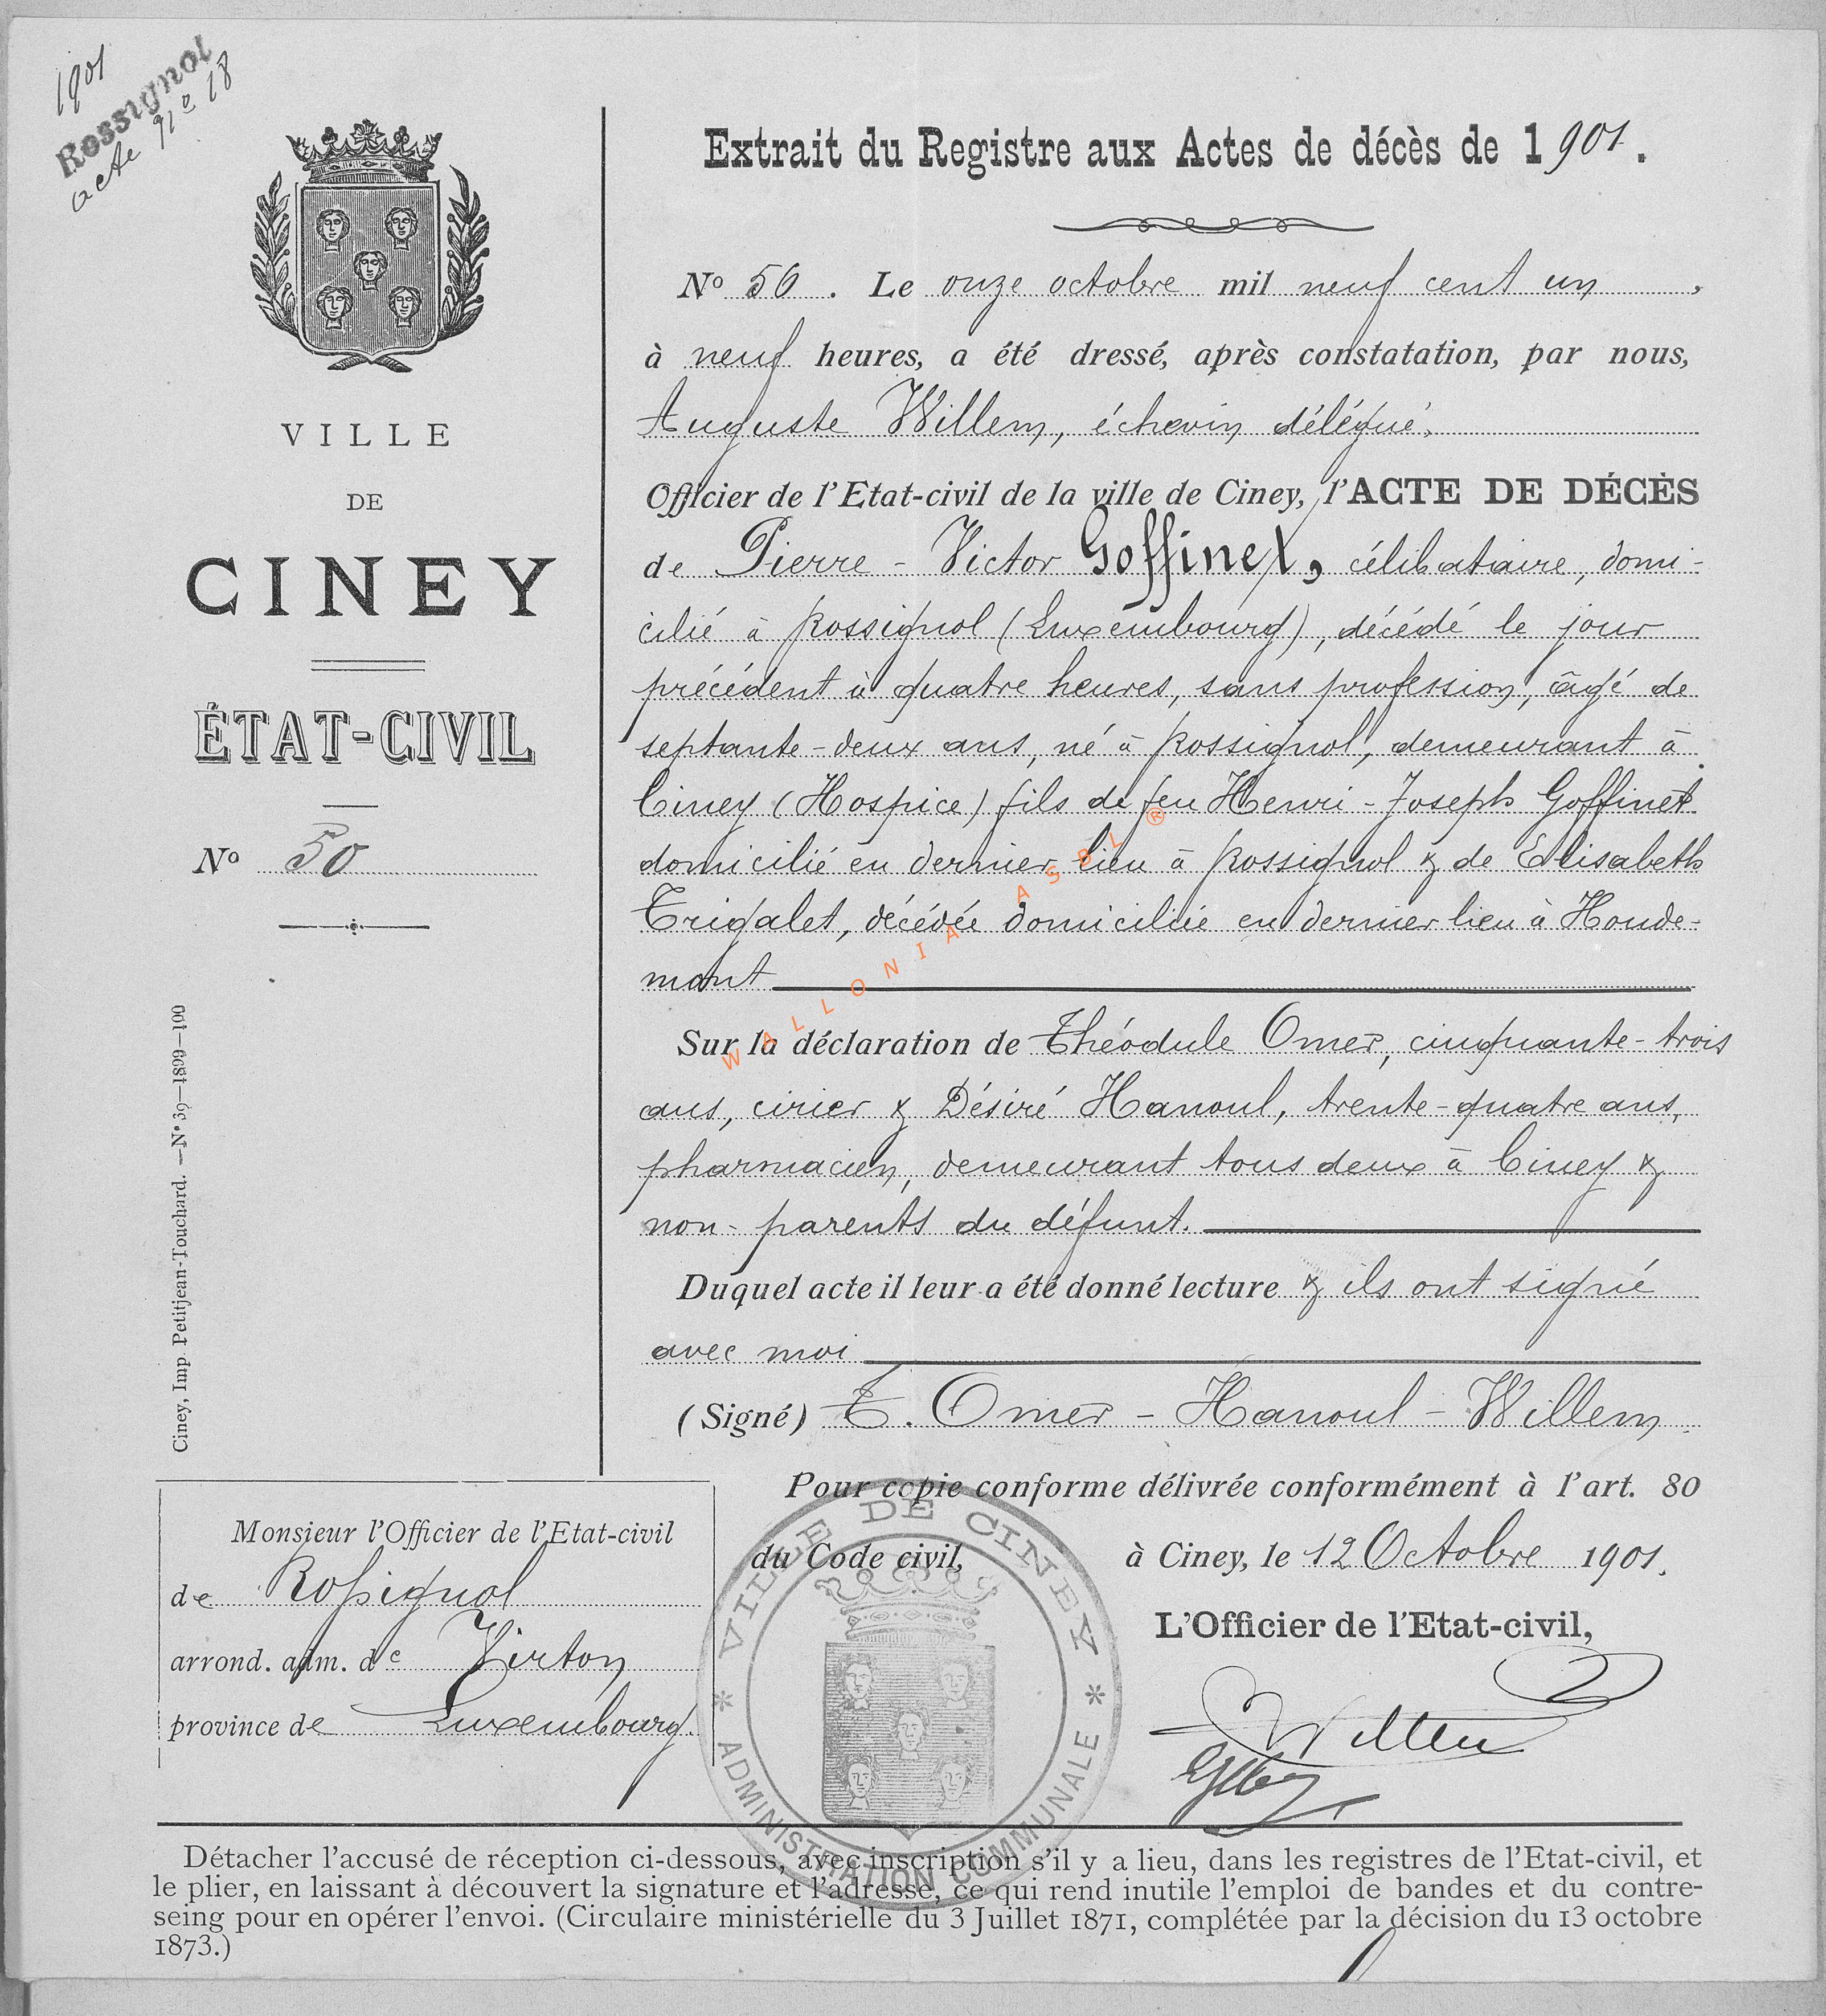 1901
Rossignol
acte nº 18
VILLE
DE
CINEY
ÉTAT-CIVIL
Nº 50
Ciney, Imp. Petitjean-Touchard. —Nº 39—1899—100
Extrait du Registre aux Actes de décès de 1901.
Nº 50. Le onze octobre mil neuf cent un,
à neuf heures, a été dressé, après constatation, par nous,
Auguste Willem, échevin délégué,
Officier de l'Etat-civil de la ville de Ciney, l'ACTE DE DÉCÈS
de Pierre - Victor Goffinet, célibataire, domi-
cilié à Rossignol (Luxembourg), décédé le jour
précédent à quatre heures, sans profession, âgé de
septante-deux ans, né à Rossignol, demeurant à
Ciney (Hospice) fils de feu Henri-Joseph Goffinet
domicilié en dernier lieu à Rossignol & de Elisabeth
Trigalet, décédée domiciliée en dernier lieu à Houde-
mont
Sur la déclaration de Théodule Omer, cinquante-trois
ans, cirier & Désiré Hanoul, trente-quatre ans,
pharmacien, demeurant tous deux à Ciney &
non-parents du défunt.
Duquel acte il leur a été donné lecture & ils ont signé
avec moi
(Signé) T. Omer - Hanoul - Willem
Pour copie conforme délivrée conformément à l'art. 80
du Code civil, à Ciney, le 12 Octobre 1901.
L'Officier de l'Etat-civil,
Willem
Monsieur l'Officier de l'Etat-civil
de Rossignol
arrond. adm. de Virton
province de Luxembourg.
VILLE DE CINEY
* ADMINISTRATION COMMUNALE *
Détacher l'accusé de réception ci-dessous, avec inscription s'il y a lieu, dans les registres de l'Etat-civil, et
le plier, en laissant à découvert la signature et l'adresse, ce qui rend inutile l'emploi de bandes et du contre-
seing pour en opérer l'envoi. (Circulaire ministérielle du 3 Juillet 1871, complétée par la décision du 13 octobre
1873.)
WALLONIA ASBL ®